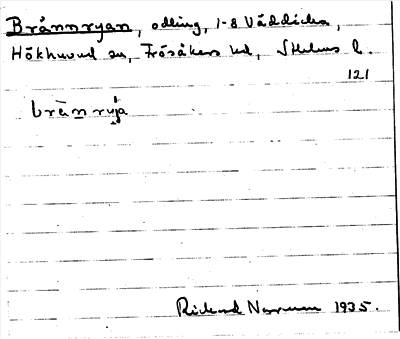 Brännryan, odling, 1-8 Väddika,
Hökhuvud sn, Frösåkers hd, Sthlms l.
121
brä̀nrỳja
Rickard Norrman 1935.